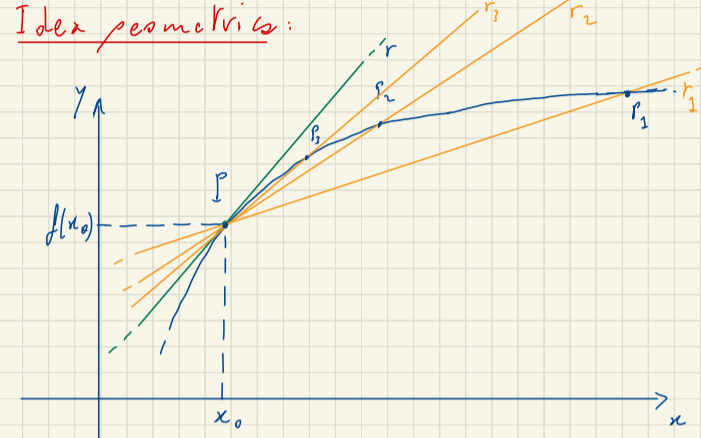 Idea geometrica:
r₃
r₂
r
y
P₂
r₁
P₃
P₁
P
f(x₀)
x₀
x